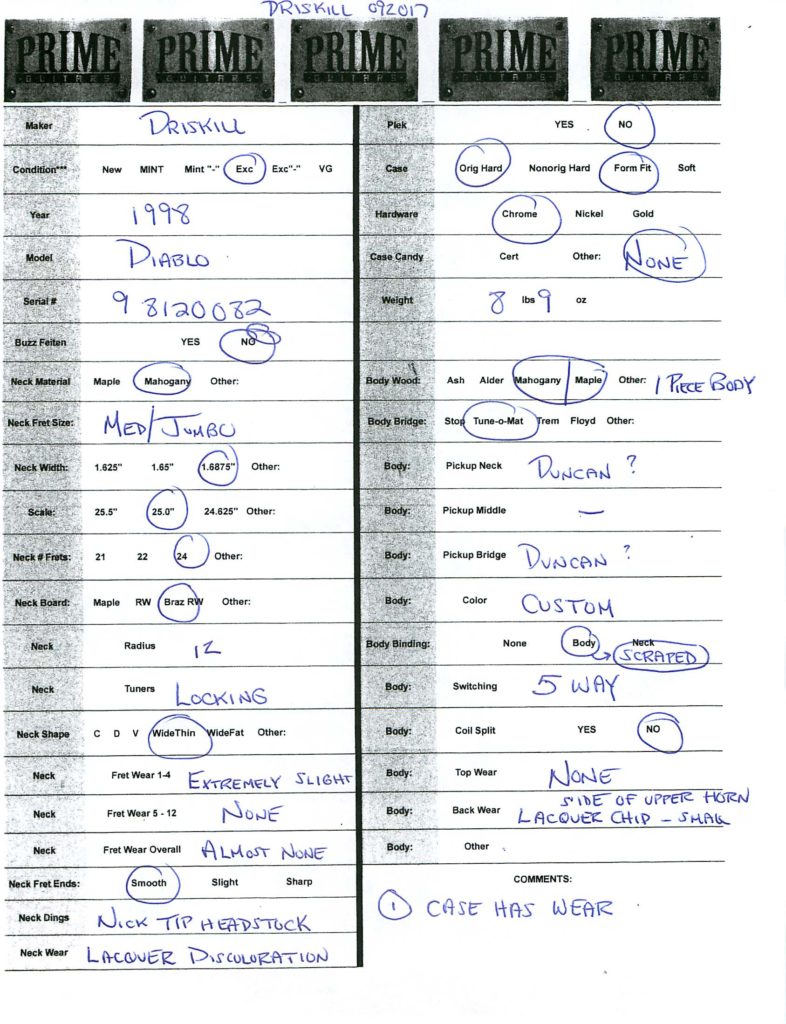 DRISKILL 092017
PRIME GUITARS PRIME GUITARS PRIME GUITARS PRIME GUITARS PRIME GUITARS
Maker DRISKILL
Condition*** New MINT Mint "-" Exc Exc"-" VG
Year 1998
Model DIABLO
Serial # 98120082
Buzz Feiten YES NO
Neck Material Maple Mahogany Other:
Neck Fret Size: MED/JUMBO
Neck Width: 1.625" 1.65" 1.6875" Other:
Scale: 25.5" 25.0" 24.625" Other:
Neck # Frets: 21 22 24 Other:
Neck Board: Maple RW Braz RW Other:
Neck Radius 12
Neck Tuners LOCKING
Neck Shape C D V WideThin WideFat Other:
Neck Fret Wear 1-4 EXTREMELY SLIGHT
Neck Fret Wear 5 - 12 NONE
Neck Fret Wear Overall ALMOST NONE
Neck Fret Ends: Smooth Slight Sharp
Neck Dings NICK TIP HEADSTOCK
Neck Wear LACQUER DISCOLORATION
Plek YES NO
Case Orig Hard Nonorig Hard Form Fit Soft
Hardware Chrome Nickel Gold
Case Candy Cert Other: NONE
Weight 8 lbs 9 oz
Body Wood: Ash Alder Mahogany Maple Other: 1 PIECE BODY
Body Bridge: Stop Tune-o-Mat Trem Floyd Other:
Body: Pickup Neck DUNCAN ?
Body: Pickup Middle —
Body: Pickup Bridge DUNCAN ?
Body: Color CUSTOM
Body Binding: None Body Neck
SCRAPED
Body: Switching 5 WAY
Body: Coil Split YES NO
Body: Top Wear NONE
SIDE OF UPPER HORN
Body: Back Wear LACQUER CHIP - SMALL
Body: Other
COMMENTS:
1 CASE HAS WEAR